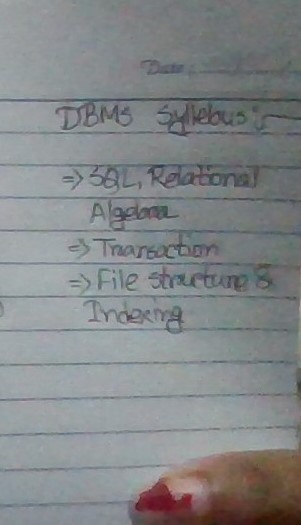 Date
DBMS Syllebus:-
=> SQL, Relational
Algebra
=> Transaction
=> File structure &
Indexing